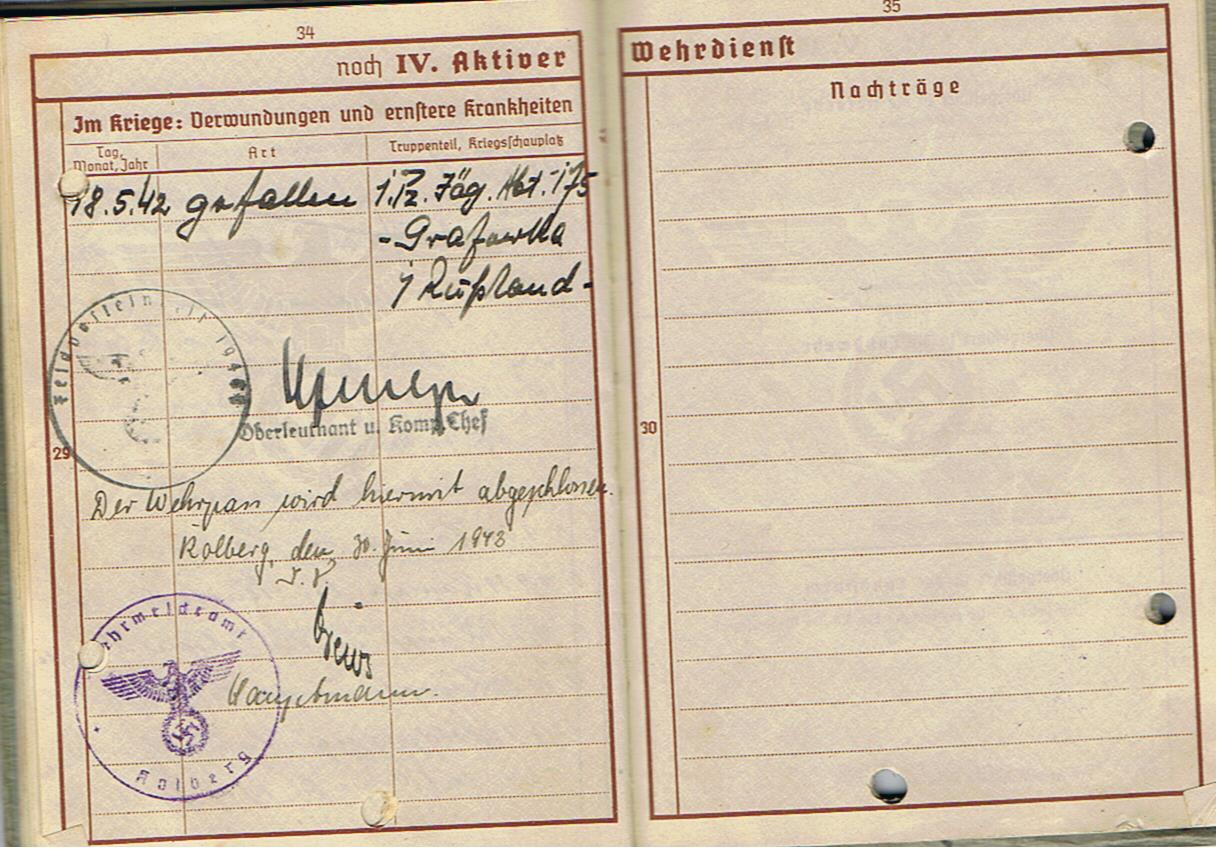 34
noch IV. Aktiver
Im Kriege: Verwundungen und ernstere Krankheiten
Tag, Monat, Jahr
Art
Truppenteil, Kriegsschauplatz
18.5.42 gefallen 1. Pz. Jäg. Abt. 175
- Grafowka
i/ Rußland -
Oberleutnant u. Komp. Chef
29
Der Wehrpass wird hiermit abgeschlossen.
Kolberg, den 30. Juni 1943
Hauptmann.
Wehrmeldeamt
Kolberg
35
Wehrdienst
Nachträge
30